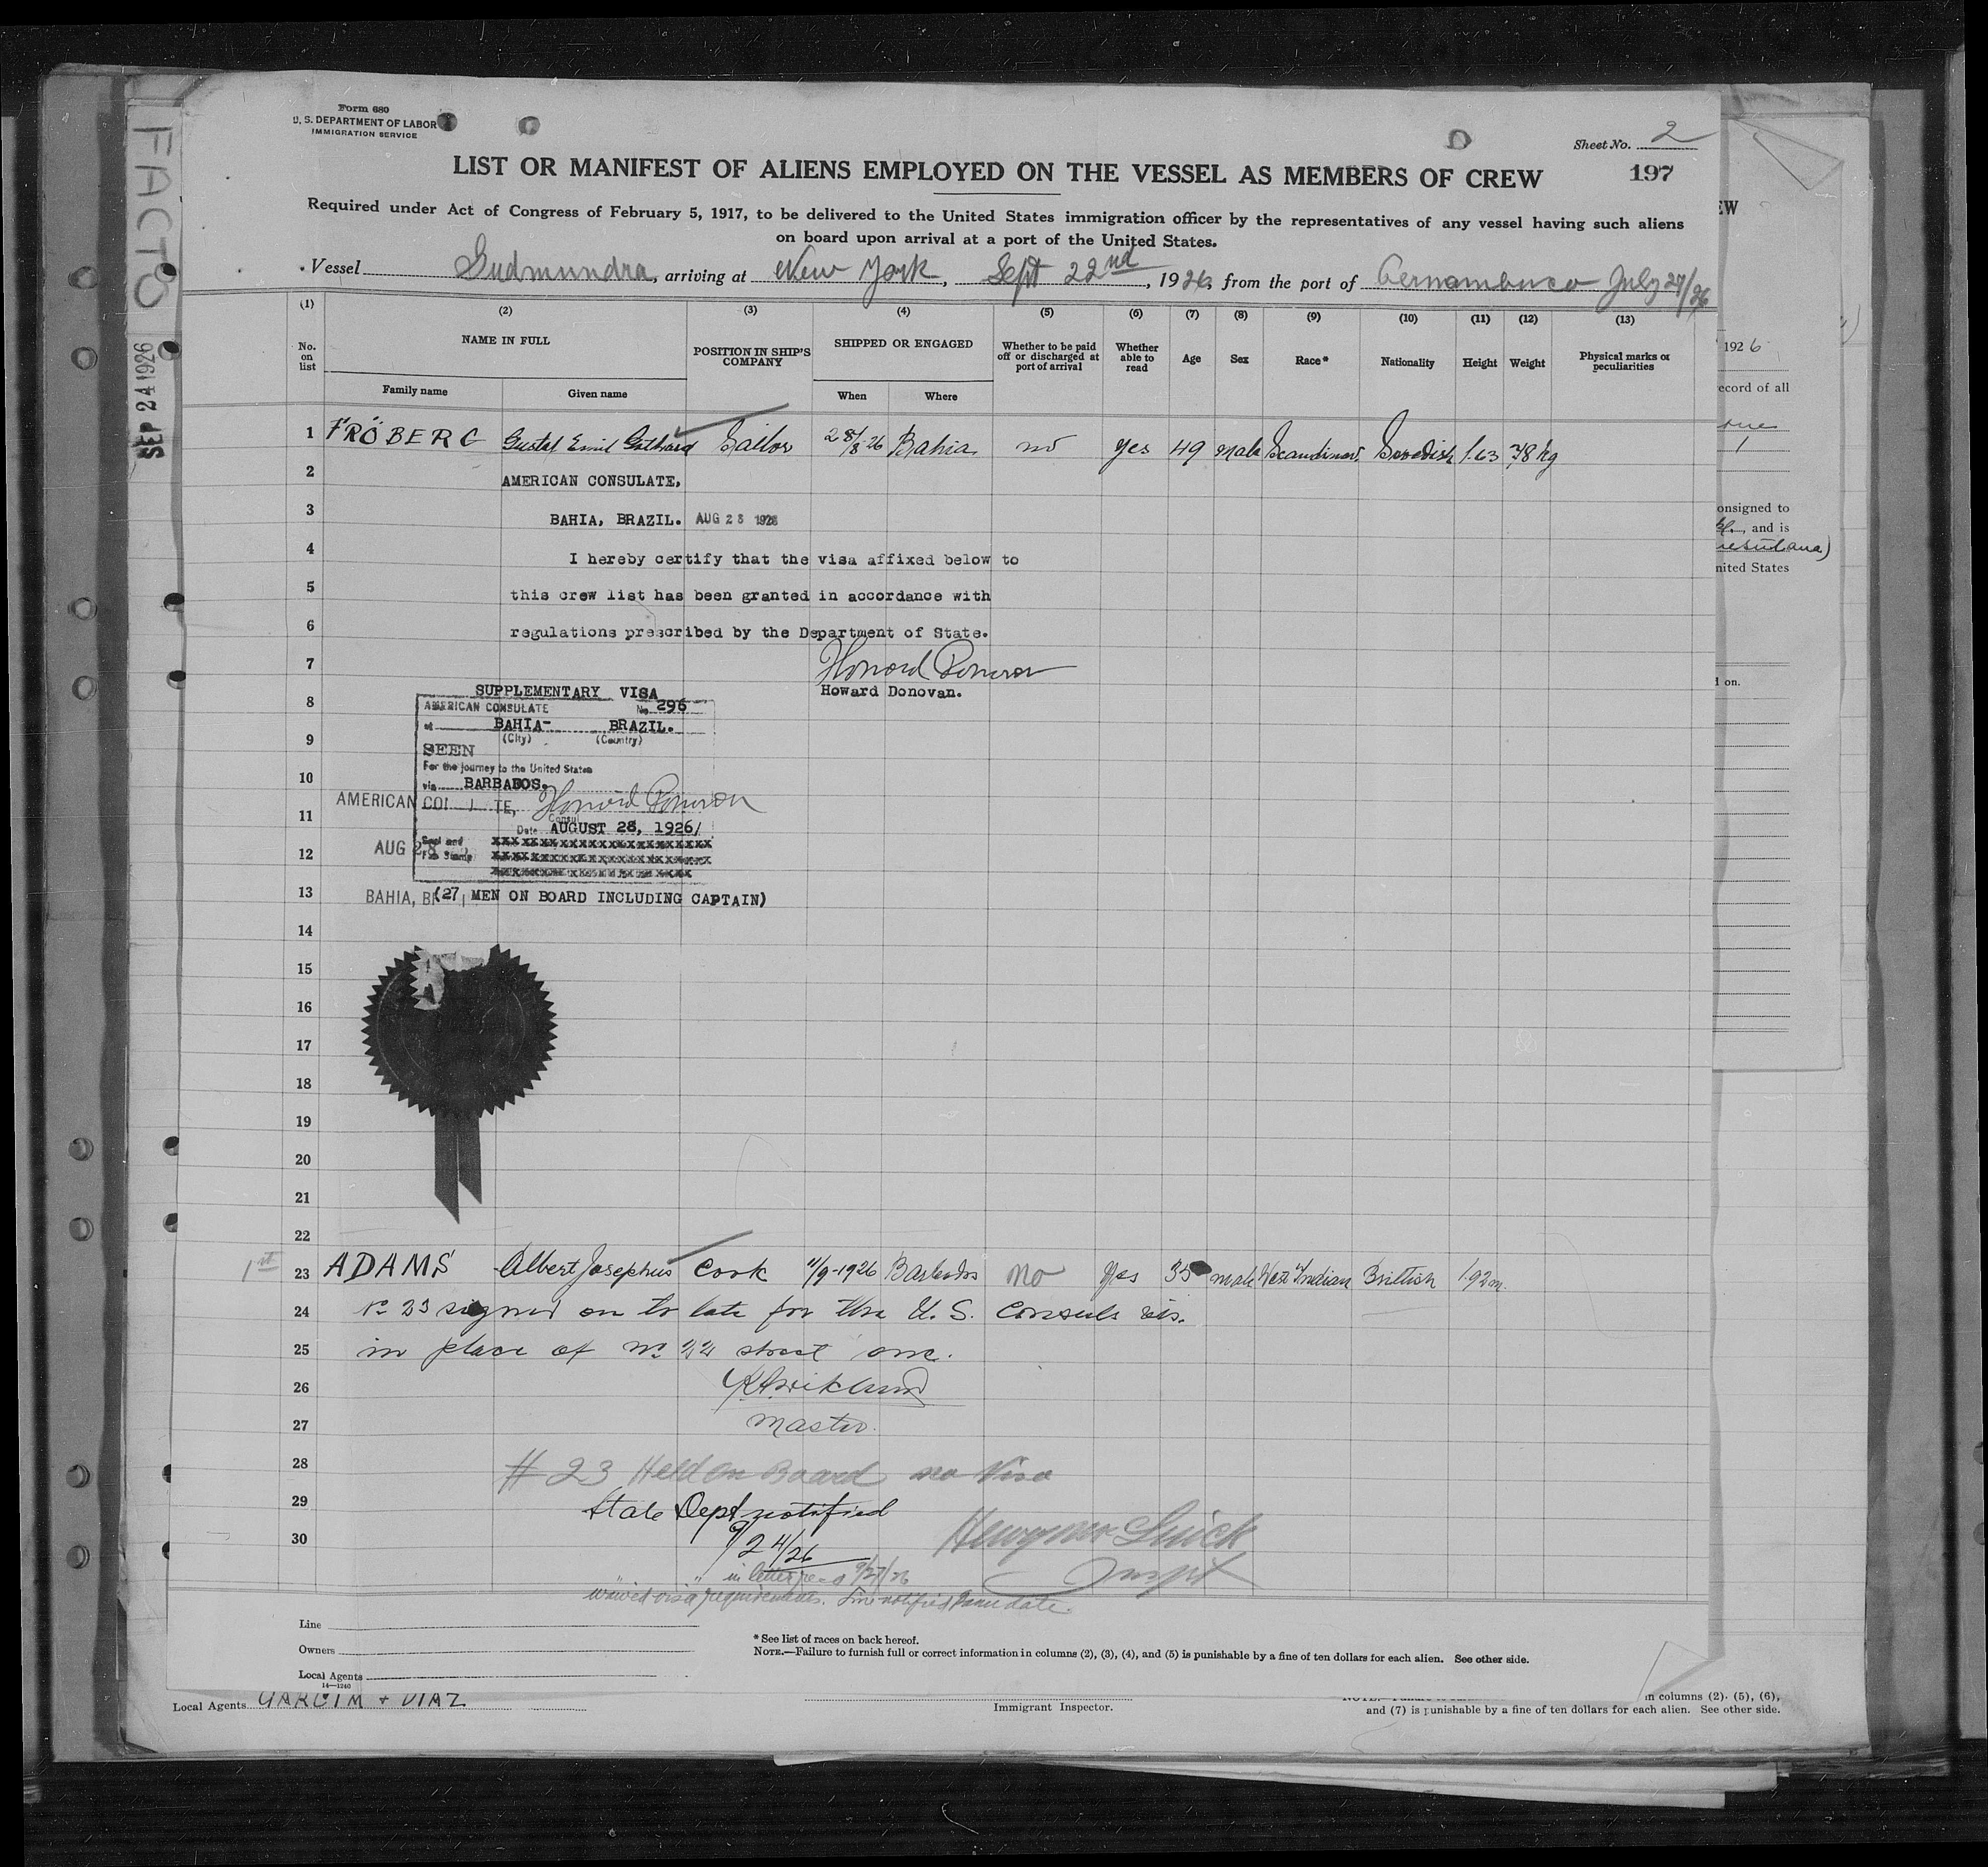 Form 680
U. S. DEPARTMENT OF LABOR
IMMIGRATION SERVICE
Sheet No. 2
LIST OR MANIFEST OF ALIENS EMPLOYED ON THE VESSEL AS MEMBERS OF CREW
197
Required under Act of Congress of February 5, 1917, to be delivered to the United States immigration officer by the representatives of any vessel having such aliens
on board upon arrival at a port of the United States.
Vessel Gudmundra, arriving at New York, Sept 22nd, 1926, from the port of Pernambuco July 27/26
(1) (2) (3) (4) (5) (6) (7) (8) (9) (10) (11) (12) (13)
No. on list NAME IN FULL POSITION IN SHIP'S COMPANY SHIPPED OR ENGAGED Whether to be paid off or discharged at port of arrival Whether able to read Age Sex Race* Nationality Height Weight Physical marks or peculiarities
Family name Given name When Where
1 FRÖBERG Gustaf Emil Gothard Sailor 28/8-26 Bahia no yes 49 male Scandinav. Swedish 1.63 78 kg
2 AMERICAN CONSULATE,
3 BAHIA, BRAZIL. AUG 28 1926
4 I hereby certify that the visa affixed below to
5 this crew list has been granted in accordance with
6 regulations prescribed by the Department of State.
7 Howard Donovan
Howard Donovan.
8 SUPPLEMENTARY VISA
AMERICAN CONSULATE No. 296
at BAHIA- BRAZIL.
9 (City) (Country)
SEEN
For the journey to the United States
10 via BARBADOS.
AMERICAN CON TE, Howard Donovan
11 Consul
Date AUGUST 28, 1926/
12 AUG 28 Seal and Fee Stamp XXXXXXXXXXXXXXXXXXXXXXX
XXXXXXXXXXXXXXXXXXXXXXX
XXXXXXXXXXXXXXXXXXXXX
13 BAHIA, B (27 MEN ON BOARD INCLUDING CAPTAIN)
14
15
16
17
18
19
20
21
22
1st 23 ADAMS Albert Josephus Cook 11/9-1926 Barbados no yes 35 male West Indian Brittish 1.92m.
24 No 23 signed on to late for the U. S. Consuls vis.
25 in place of No 22 sheet one.
26
27 Master.
28 # 23 Held on Board no Visa
29 State Dept notified
30 9/24/26
Henry
" " in letter rec'd 9/27/26 Inspt
waived visa requirements. Line notified same date.
Line
Owners
Local Agents
14—1240
* See list of races on back hereof.
NOTE.—Failure to furnish full or correct information in columns (2), (3), (4), and (5) is punishable by a fine of ten dollars for each alien. See other side.
Local Agents GARCIA + DIAZ
Immigrant Inspector.
in columns (2), (5), (6),
and (7) is punishable by a fine of ten dollars for each alien. See other side.
FACTO
SEP 24 1926
EW
1926
ecord of all
onsigned to
and is
nited States
d on.